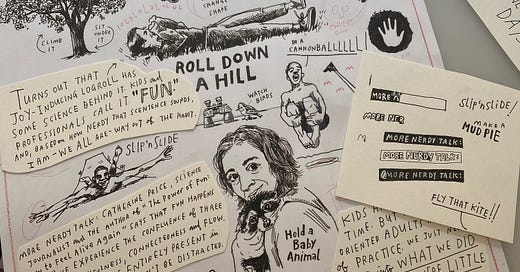 CHANGE
SHAPE
CLIMB
IT
SIT
UNDER
IT
ROLL DOWN
A HILL
DO A
CANNONBALLLLLL
WATCH
BIRDS
TURNS OUT THAT
JOY-INDUCING LOGROLL HAS
SOME SCIENCE BEHIND IT. KIDS AND
PROFESSIONALS CALL IT "FUN"
AND, BASED ON HOW NERDY THAT SCENTENCE SOUNDS,
I AM—WE ALL ARE—WAY OUT OF THE HABIT.
SLIP'N SLIDE
MORE NERDY TALK: CATHERINE PRICE, SCIENCE
JOURNALIST AND THE AUTHOR OF "The Power of Fun:
to Feel Alive Again" SAYS THAT FUN HAPPENS
EXPERIENCE THE CONFLUENCE OF THREE
CONNECTEDNESS AND FLOW.
ENTIRELY PRESENT IN
BE DISTRACTED.
Hold a
Baby
Animal
MORE N
MORE NER
SLIP'N SLIDE!
MAKE A
MUD PIE
MORE NERDY TALK:
MORE NERDY TALK:
MORE NERDY TALK:
FLY THAT KITE!!
KIDS
TIME. BUT
ORIENTED ADULTS
OF PRACTICE. WE JUST NE
WHAT WE DID
LITTLE
DA